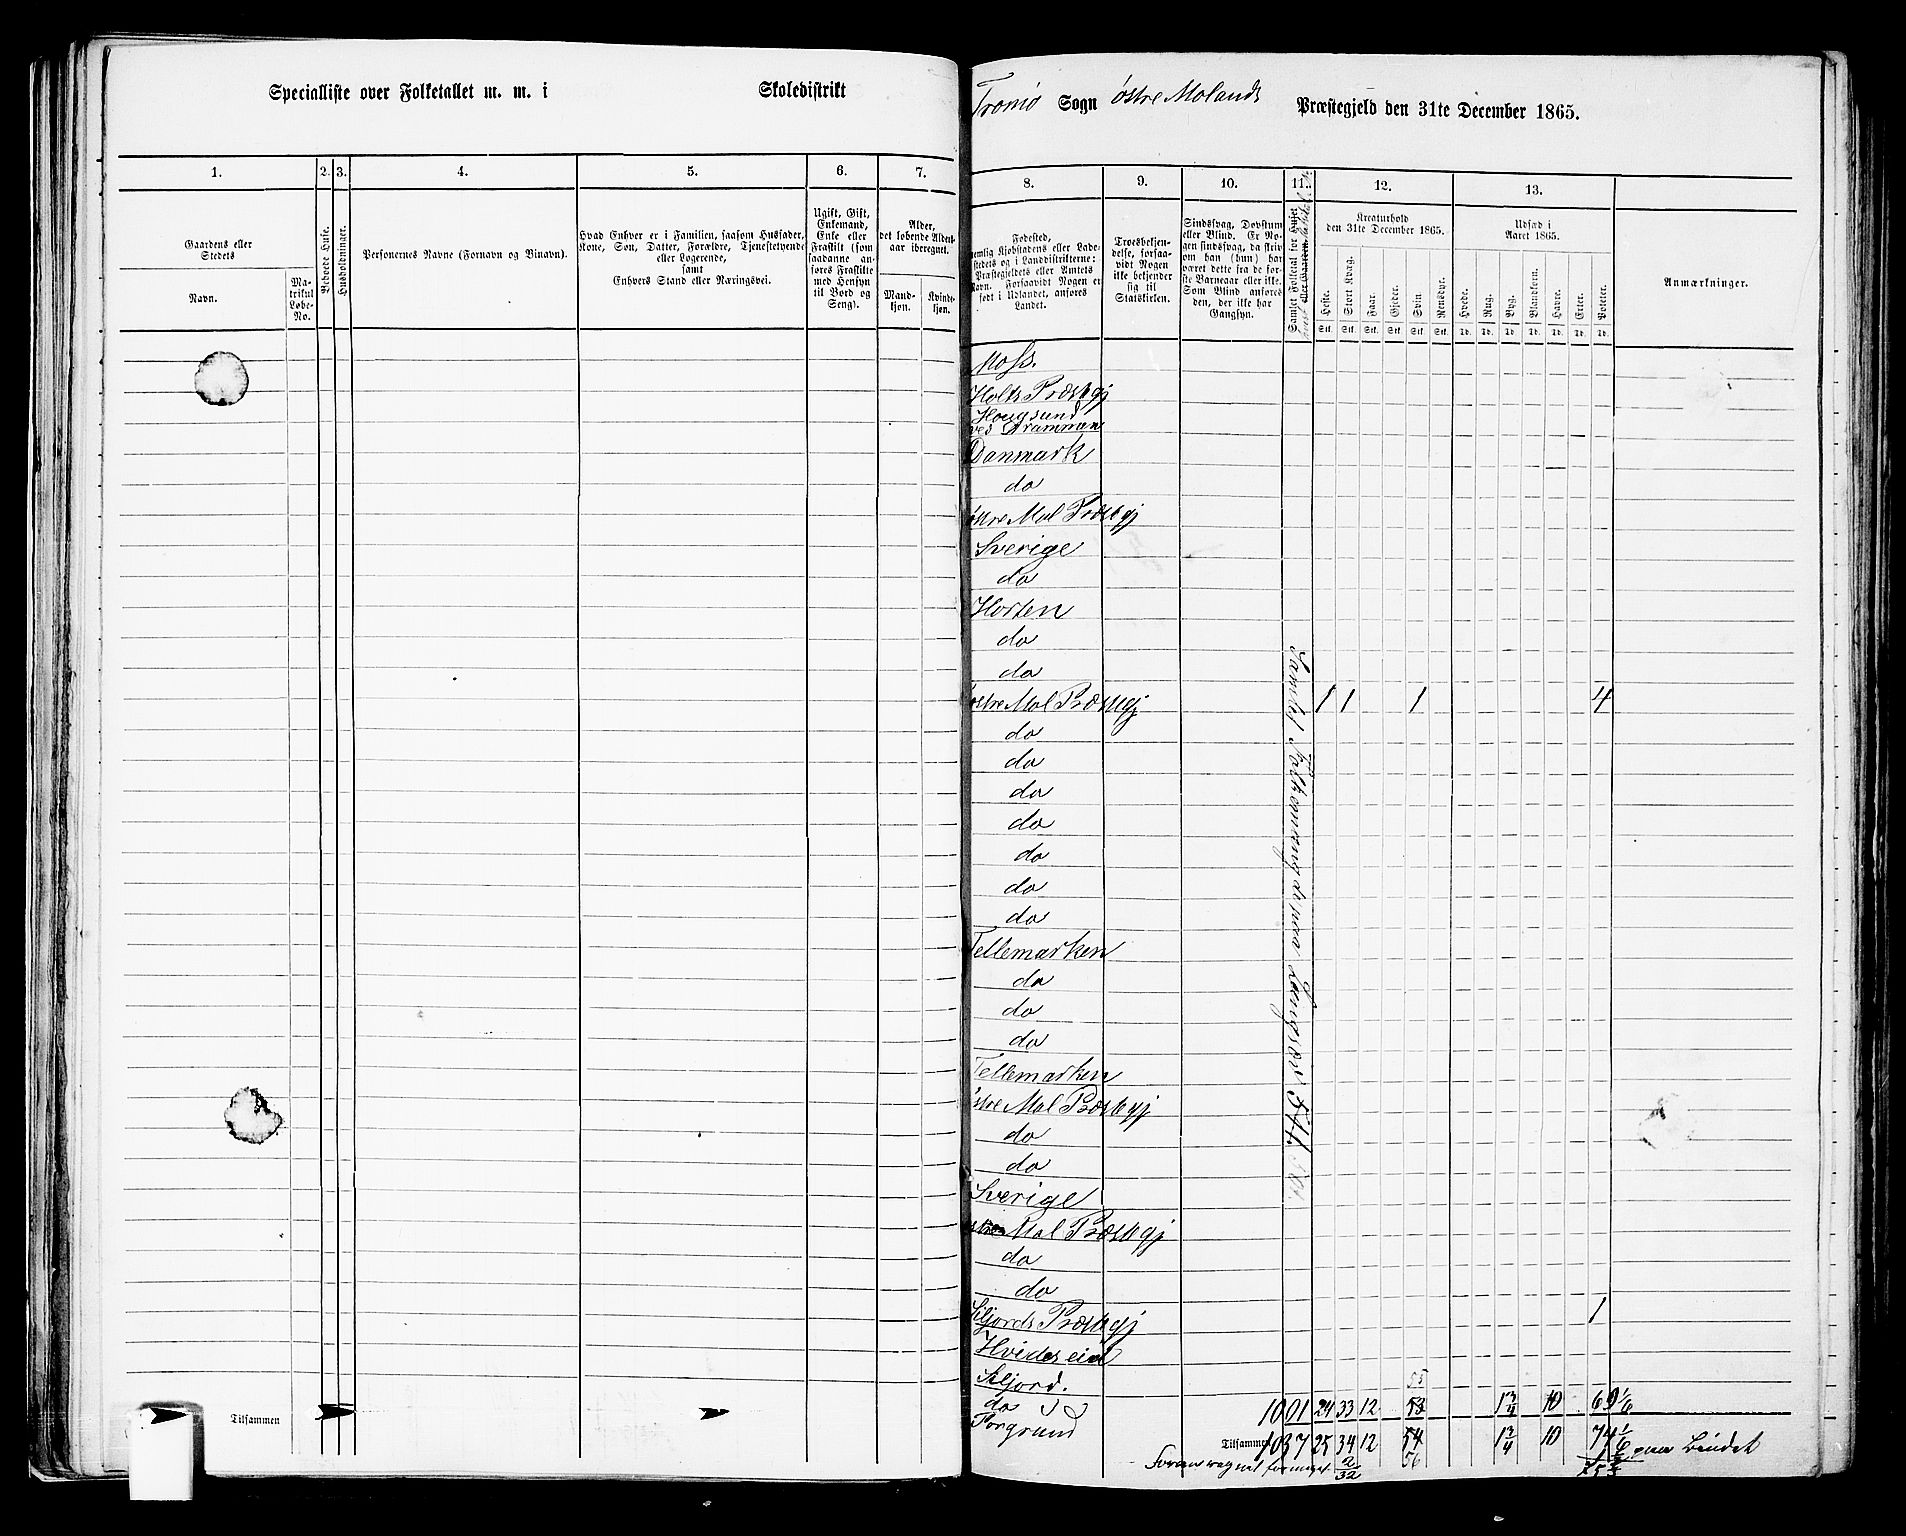 Specialliste over Folketallet m. m. i Skoledistrikt
Tromø Sogn Østre Molands Præstegjeld den 31te December 1865.
1. 2. 3. 4. 5. 6. 7.
Gaardens eller
Stedets
Navn.
Ma-
trikul
Løbe-
No.
Beboede Huse.
Husholdninger.
Personernes Navne (Fornavn og Binavn).
Hvad Enhver er i Familien, saasom Husfader,
Kone, Søn, Datter, Forældre, Tjenestetyende
eller Logerende,
samt
Enhvers Stand eller Næringsvei.
Ugift, Gift,
Enkemand,
Enke eller
Fraskilt (som
saadanne an-
føres Fraskilte
med Hensyn
til Bord og
Seng).
Alder,
det løbende Alders-
aar iberegnet.
Mand-
kjøn.
Kvinde-
kjøn.
Tilsammen
8. 9. 10. 11. 12. 13.
Fødested,
nemlig Kjøbstadens eller Lade-
stedets og i Landdistrikterne:
Præstegjeldets eller Amtets
Navn. Forsaavidt Nogen er
født i Udlandet, anføres
Landet.
Troesbekjen-
delse, forsaa-
vidt Nogen
ikke bekjender
sig til
Statskirken.
Sindssvag, Døvstum
eller Blind. Er No-
gen sindssvag, da skriv
om han (hun) har
været dette fra de før-
ste Barneaar eller ikke.
Som Blind anføres
den, der ikke har
Gangsyn.
Samlet Folketal for Huset
eller Gaarden
Kreaturhold
den 31te December 1865.
Heste.
Stort Kvæg.
Faar.
Gjeder.
Svin.
Rensdyr.
Stk. Stk. Stk. Stk. Stk. Stk.
Udsæd i
Aaret 1865.
Hvede.
Rug.
Byg.
Blandkorn.
Havre.
Erter.
Poteter.
Td. Td. Td. Td. Td. Td. Td.
Anmærkninger.
Moss.
Holts Præstegj
Hougsund
ved Drammen
Danmark
do
Østre Mol Præstegj
Sverige
do
Horten
do
do
Østre Mol Præstegj 1 1 1 4
do
do
do
do
do
do
do
Tellemarken
do
do
do
Tellemarken
Østre Mol Præstegj
do
do
Sverige
Østre Mol Præstegj
do
do
Siljords Præstegj 1
Hvideseid
Siljord.
do
Porgrund
Samlet Folkemængde paa Langsæ
55
1001 24 33 12 53 1 3/4 10 69 1/6
Tilsammen 1037 25 34 12 54 1 3/4 10 74 1/6
56
2
32